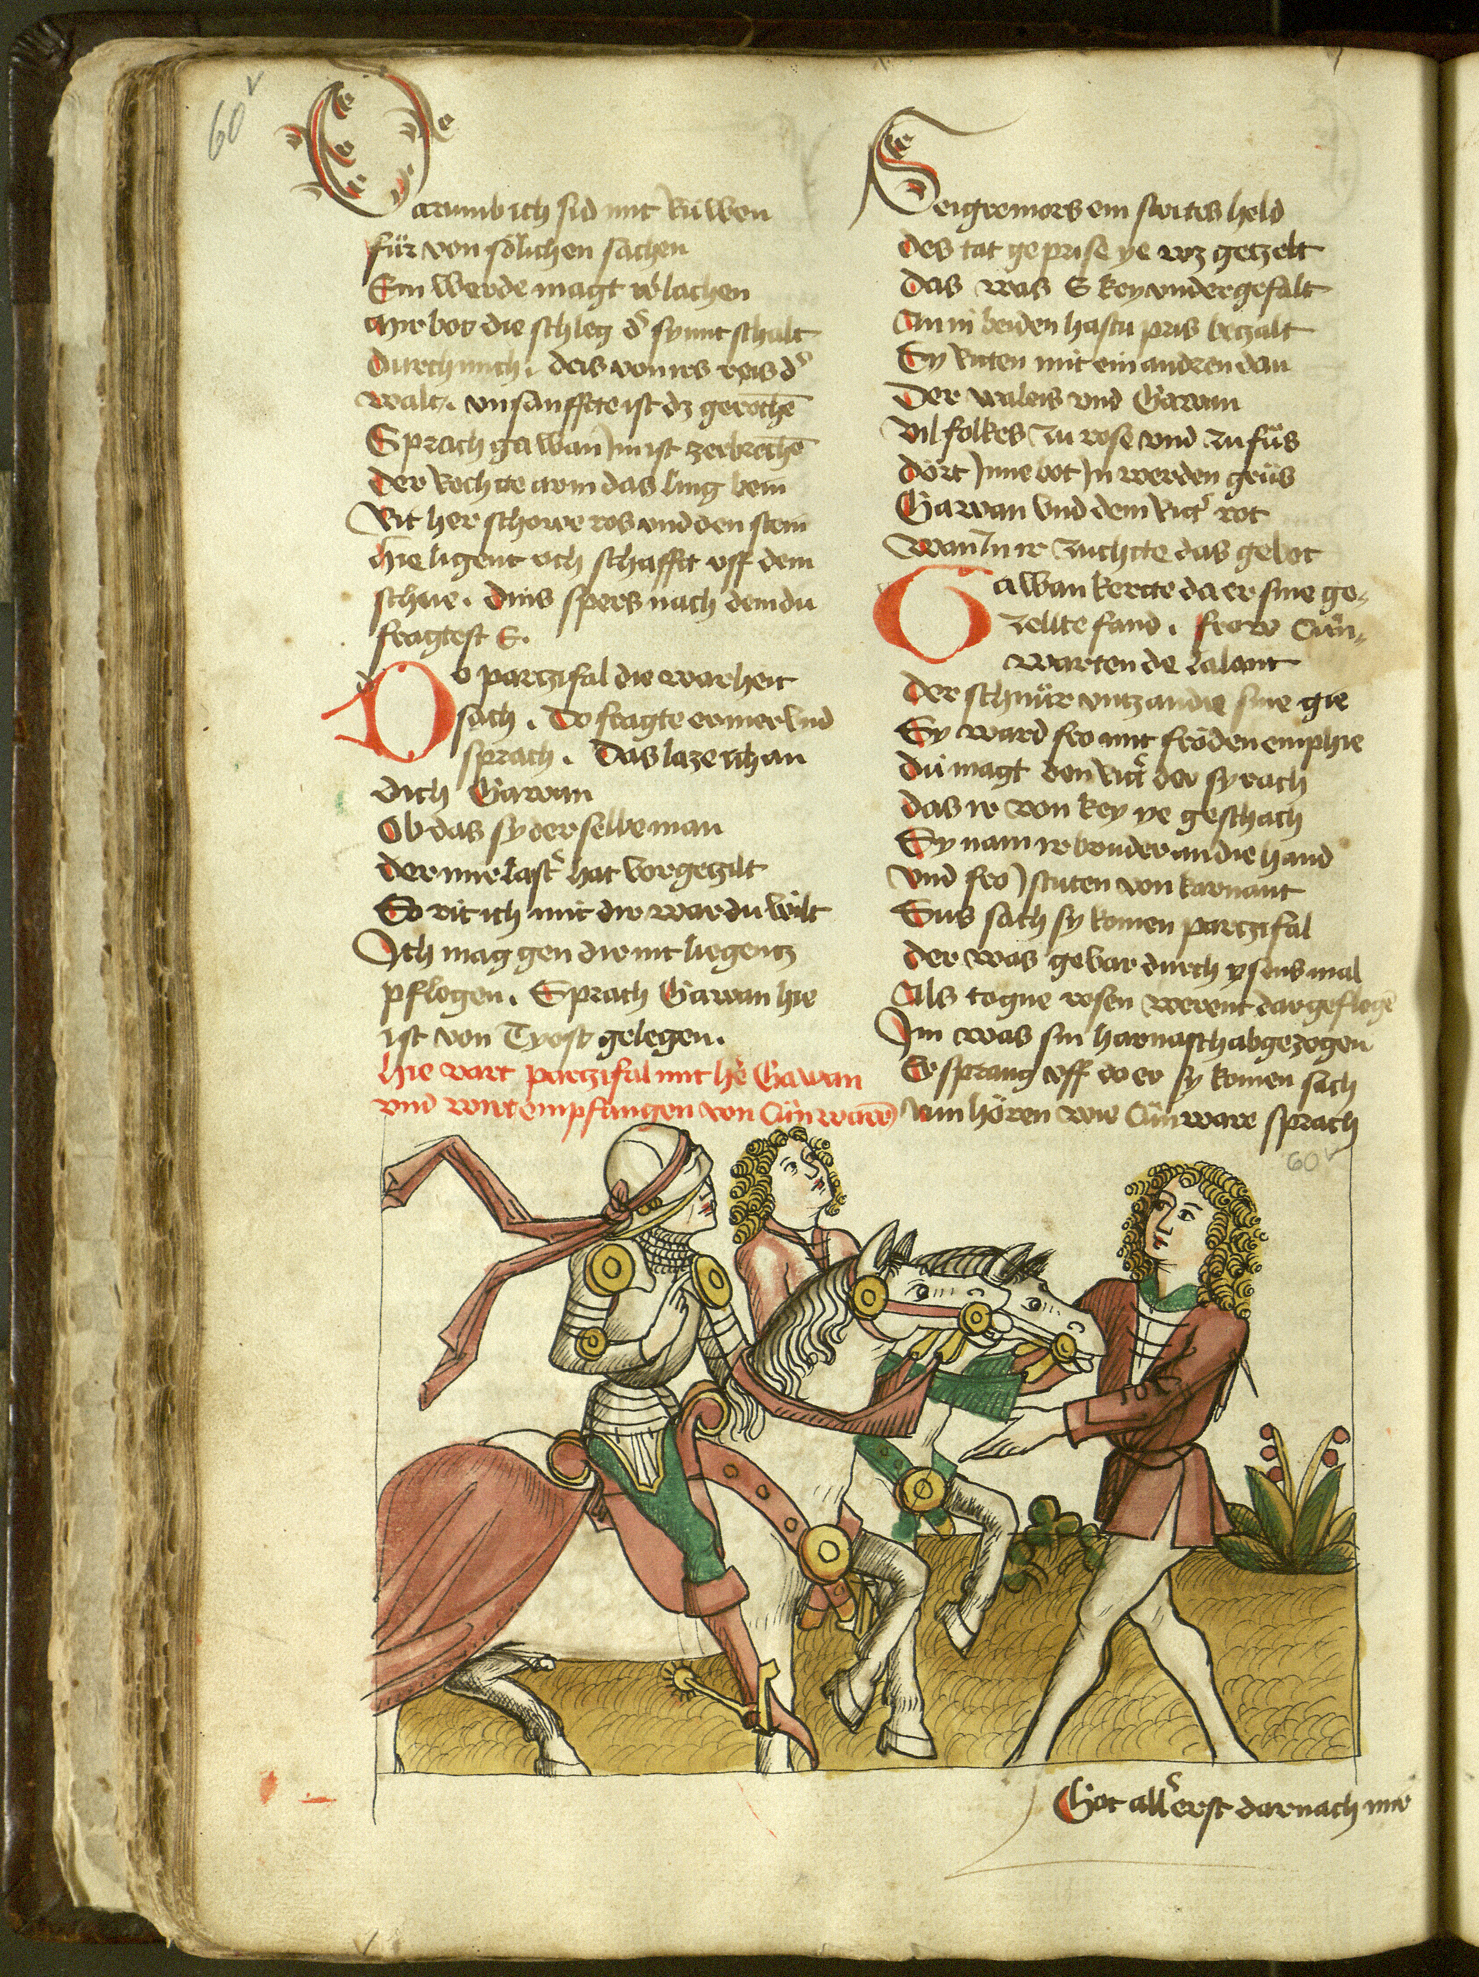 60v
Darumb ich sid mit rüwen
für von sölichen sachen
Ein werde magt v̓lachen
Mir bot die schleg d̓ sy mit schalt
durch mich . des von irs reis d̓
walt . unsanffte ist dz gerochē
Sprach gawan Jm ist zerbrochē
der rechte arm das ling bein
Rit her schowe ros und den stein
hie ligent och schafft uff dem
schne . dins spers nach dem du
fragtest E .
Do partzifal die warheit
sach . Do fragte er mer und
sprach . Das laze ich an
dich Gawan
Ob das sy der selbe man
der mir last̓ hat vorgezilt
So rit ich mit dir war du wilt
Ich mag gen dir nit liegentz
pflegen . Sprach Gawan hie
ist von Tyost gelegen .
hie vart partzifal mit he̓ Gawan
und wirt empfangen von Cūnwarē
Seigremors ein strites held
des tat geprise ye wz getzelt
das was E key undergefalt
An in beiden hastu pris bezalt
Sy ritten mit ein andren dan
Der waleis und Gawan
Vil folkes zu rose und zu füs
dört Jnne bot Jn werden grüs
Gawan und dem rit̓ rot
Wan Jn ir zuchte das gebot
Gawan kerte da er sine ge-
zellte fand . frow Cūn-
warten de lalant
der schnür untz an die sine gie
Sy ward fro mit fröden emphie
dü magt den rit̓ der sy rach
das ir von key ye geschach
Sy nam ir bruder an die hand
und fro Jstuten von karnant
Sus sach sy komen partzifal
der was gevar durch ysens mal
Als togne rosen werent dar geflogē
Im was sin harnasch abgezogen
Er sprang uff do er sy komen sach
Nun hören wie Cūnware sprach
60v
Got all̓erst darnach mir